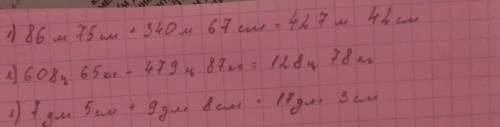 1) 86 м 75 см + 340 м 67 см = 427 м 42 см
2) 608 ц 65 кг - 479 ц 87 кг = 128 ц 78 кг
3) 7 дм 5 см + 9 дм 8 см = 17 дм 3 см